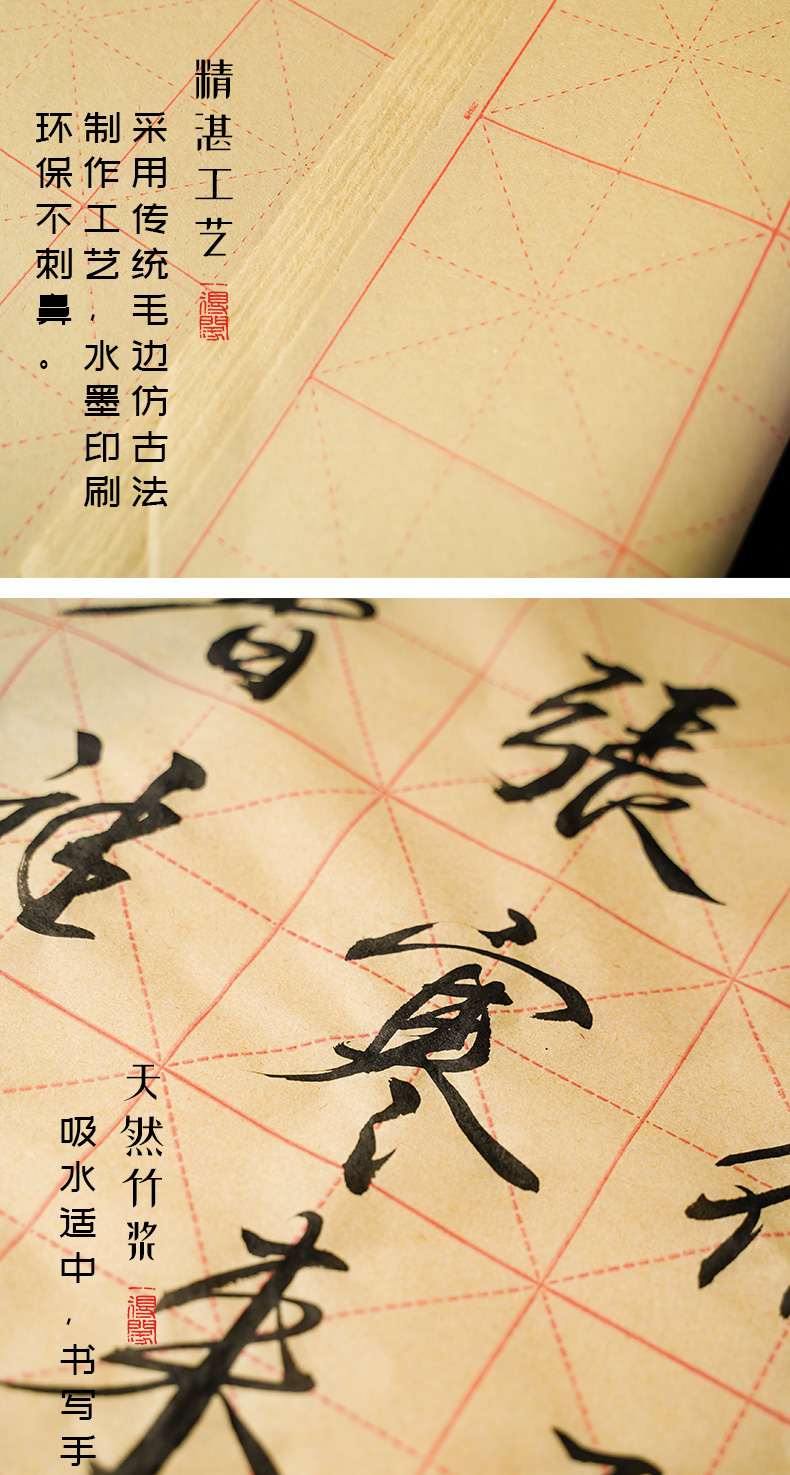 精湛工艺
采用传统毛边仿古法
制作工艺,水墨印刷
环保不刺鼻。
張
寒
來
天然竹浆
吸水适中,书写手